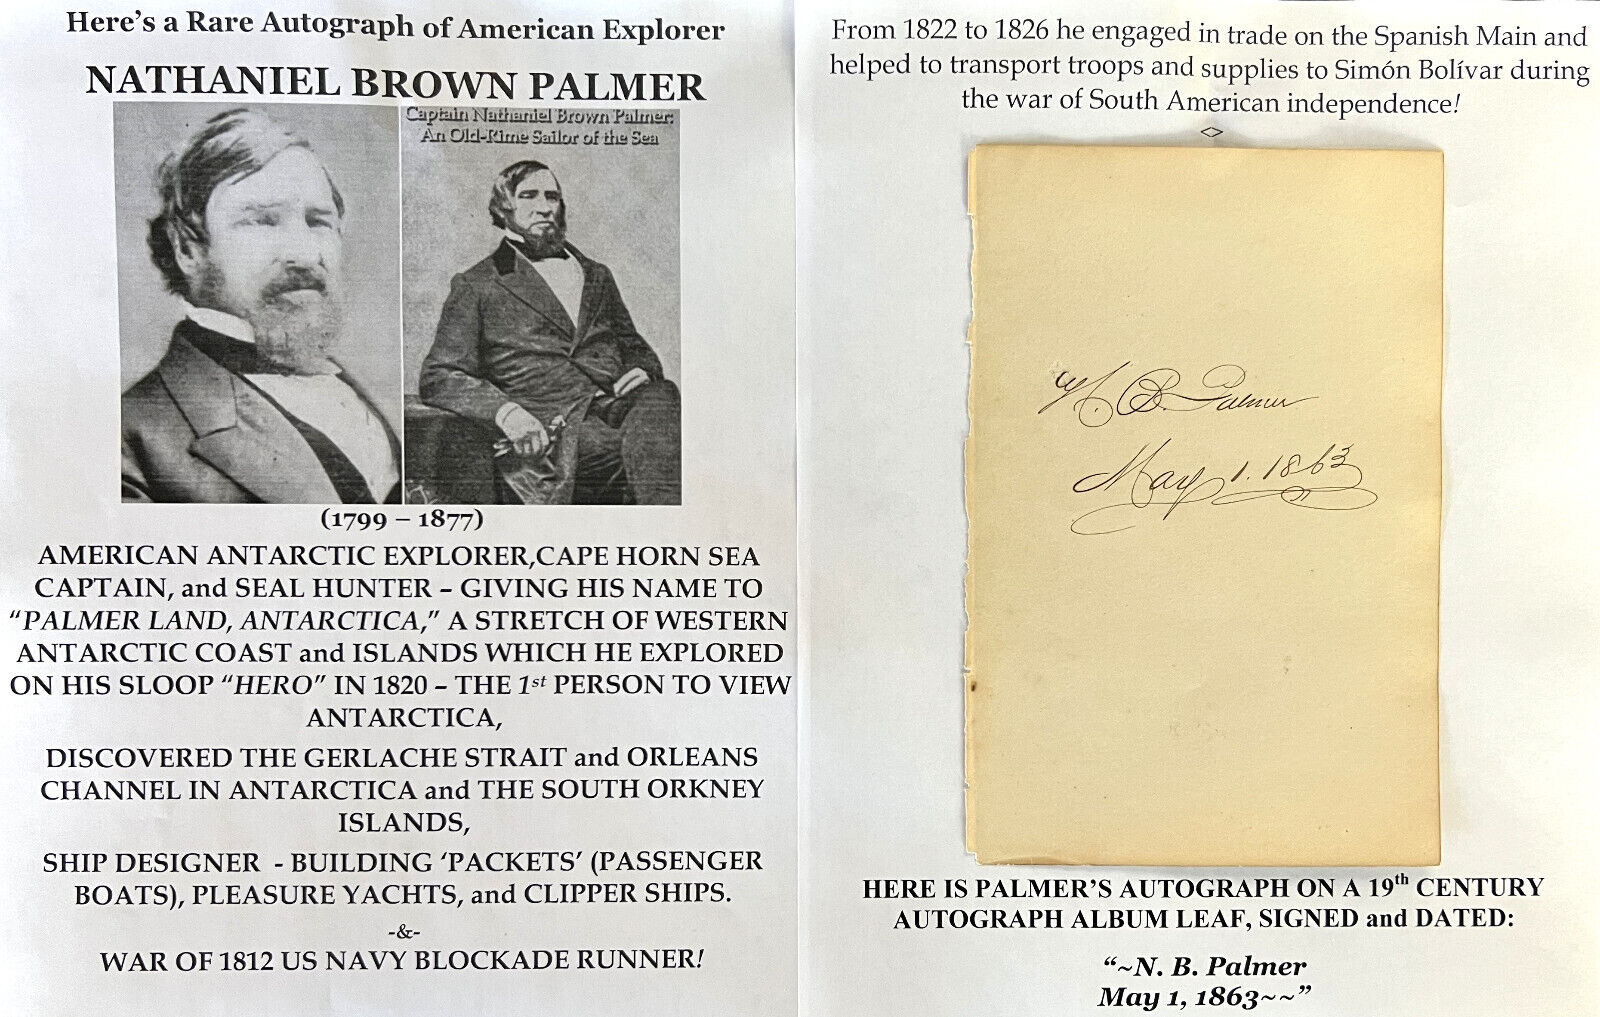 Here's a Rare Autograph of American Explorer
NATHANIEL BROWN PALMER
Captain Nathaniel Brown Palmer:
An Old-Rime Sailor of the Sea
(1799 – 1877)
AMERICAN ANTARCTIC EXPLORER,CAPE HORN SEA
CAPTAIN, and SEAL HUNTER – GIVING HIS NAME TO
“PALMER LAND, ANTARCTICA,” A STRETCH OF WESTERN
ANTARCTIC COAST and ISLANDS WHICH HE EXPLORED
ON HIS SLOOP “HERO” IN 1820 – THE 1st PERSON TO VIEW
ANTARCTICA,
DISCOVERED THE GERLACHE STRAIT and ORLEANS
CHANNEL IN ANTARCTICA and THE SOUTH ORKNEY
ISLANDS,
SHIP DESIGNER - BUILDING ‘PACKETS’ (PASSENGER
BOATS), PLEASURE YACHTS, and CLIPPER SHIPS.
-&-
WAR OF 1812 US NAVY BLOCKADE RUNNER!
From 1822 to 1826 he engaged in trade on the Spanish Main and
helped to transport troops and supplies to Simón Bolívar during
the war of South American independence!
<>
N. B. Palmer
May 1. 1863
HERE IS PALMER’S AUTOGRAPH ON A 19th CENTURY
AUTOGRAPH ALBUM LEAF, SIGNED and DATED:
“~N. B. Palmer
May 1, 1863~~”